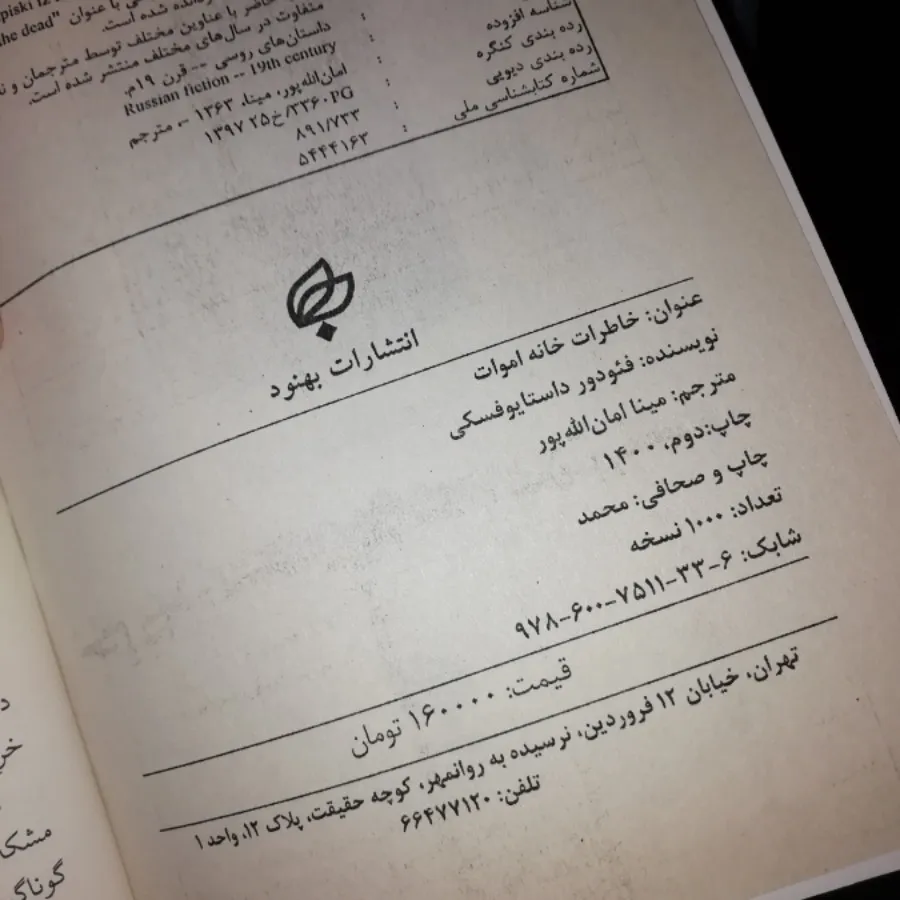 piski iz
ی با عنوان "the dead
رمانده شده است.
حاضر با عناوین مختلف توسط مترجمان و
متفاوت در سال‌های مختلف منتشر شده است.
داستان‌های روسی -- قرن ۱۹م.
Russian fiction -- 19th century
شناسه افزوده : امان‌الله‌پور، مینا، ۱۳۶۳ -، مترجم
رده بندی کنگره : ۱۳۹۷ ۲۵خ/۳۳۶۰PG
رده بندی دیویی : ۸۹۱/۷۳۳
شماره کتابشناسی ملی : ۵۴۴۴۱۶۳
انتشارات بهنود
عنوان: خاطرات خانه اموات
نویسنده: فئودور داستایوفسکی
مترجم: مینا امان‌الله‌پور
چاپ:دوم، ۱۴۰۰
چاپ و صحافی: محمد
تعداد: ۱۰۰۰ نسخه
شابک: ۶-۳۳-۷۵۱۱-۶۰۰-۹۷۸
قیمت: ۱۶۰۰۰۰ تومان
تهران، خیابان ۱۲ فروردین، نرسیده به روانمهر، کوچه حقیقت، پلاک ۱۲، واحد ۱
تلفن: ۶۶۴۷۷۱۲۰
مشکا
گوناگ